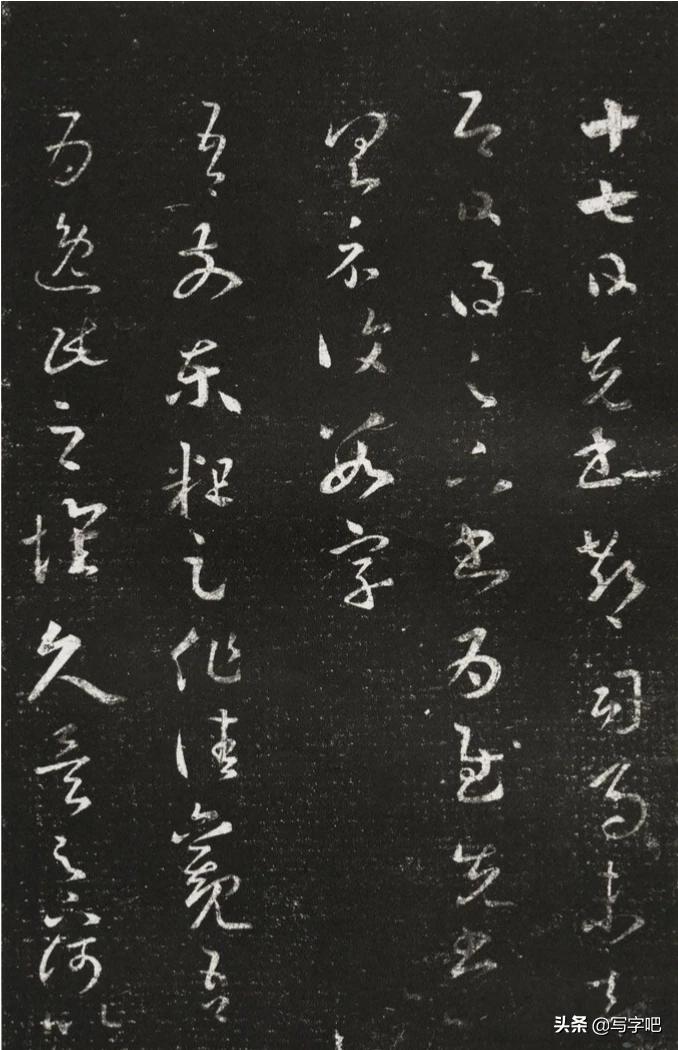 十七日先書郗司馬未去
即日得足下書為慰先書
具示復數字
吾前東粗足作佳觀吾
為逸民之懷久矣足下何
头条 @写字吧